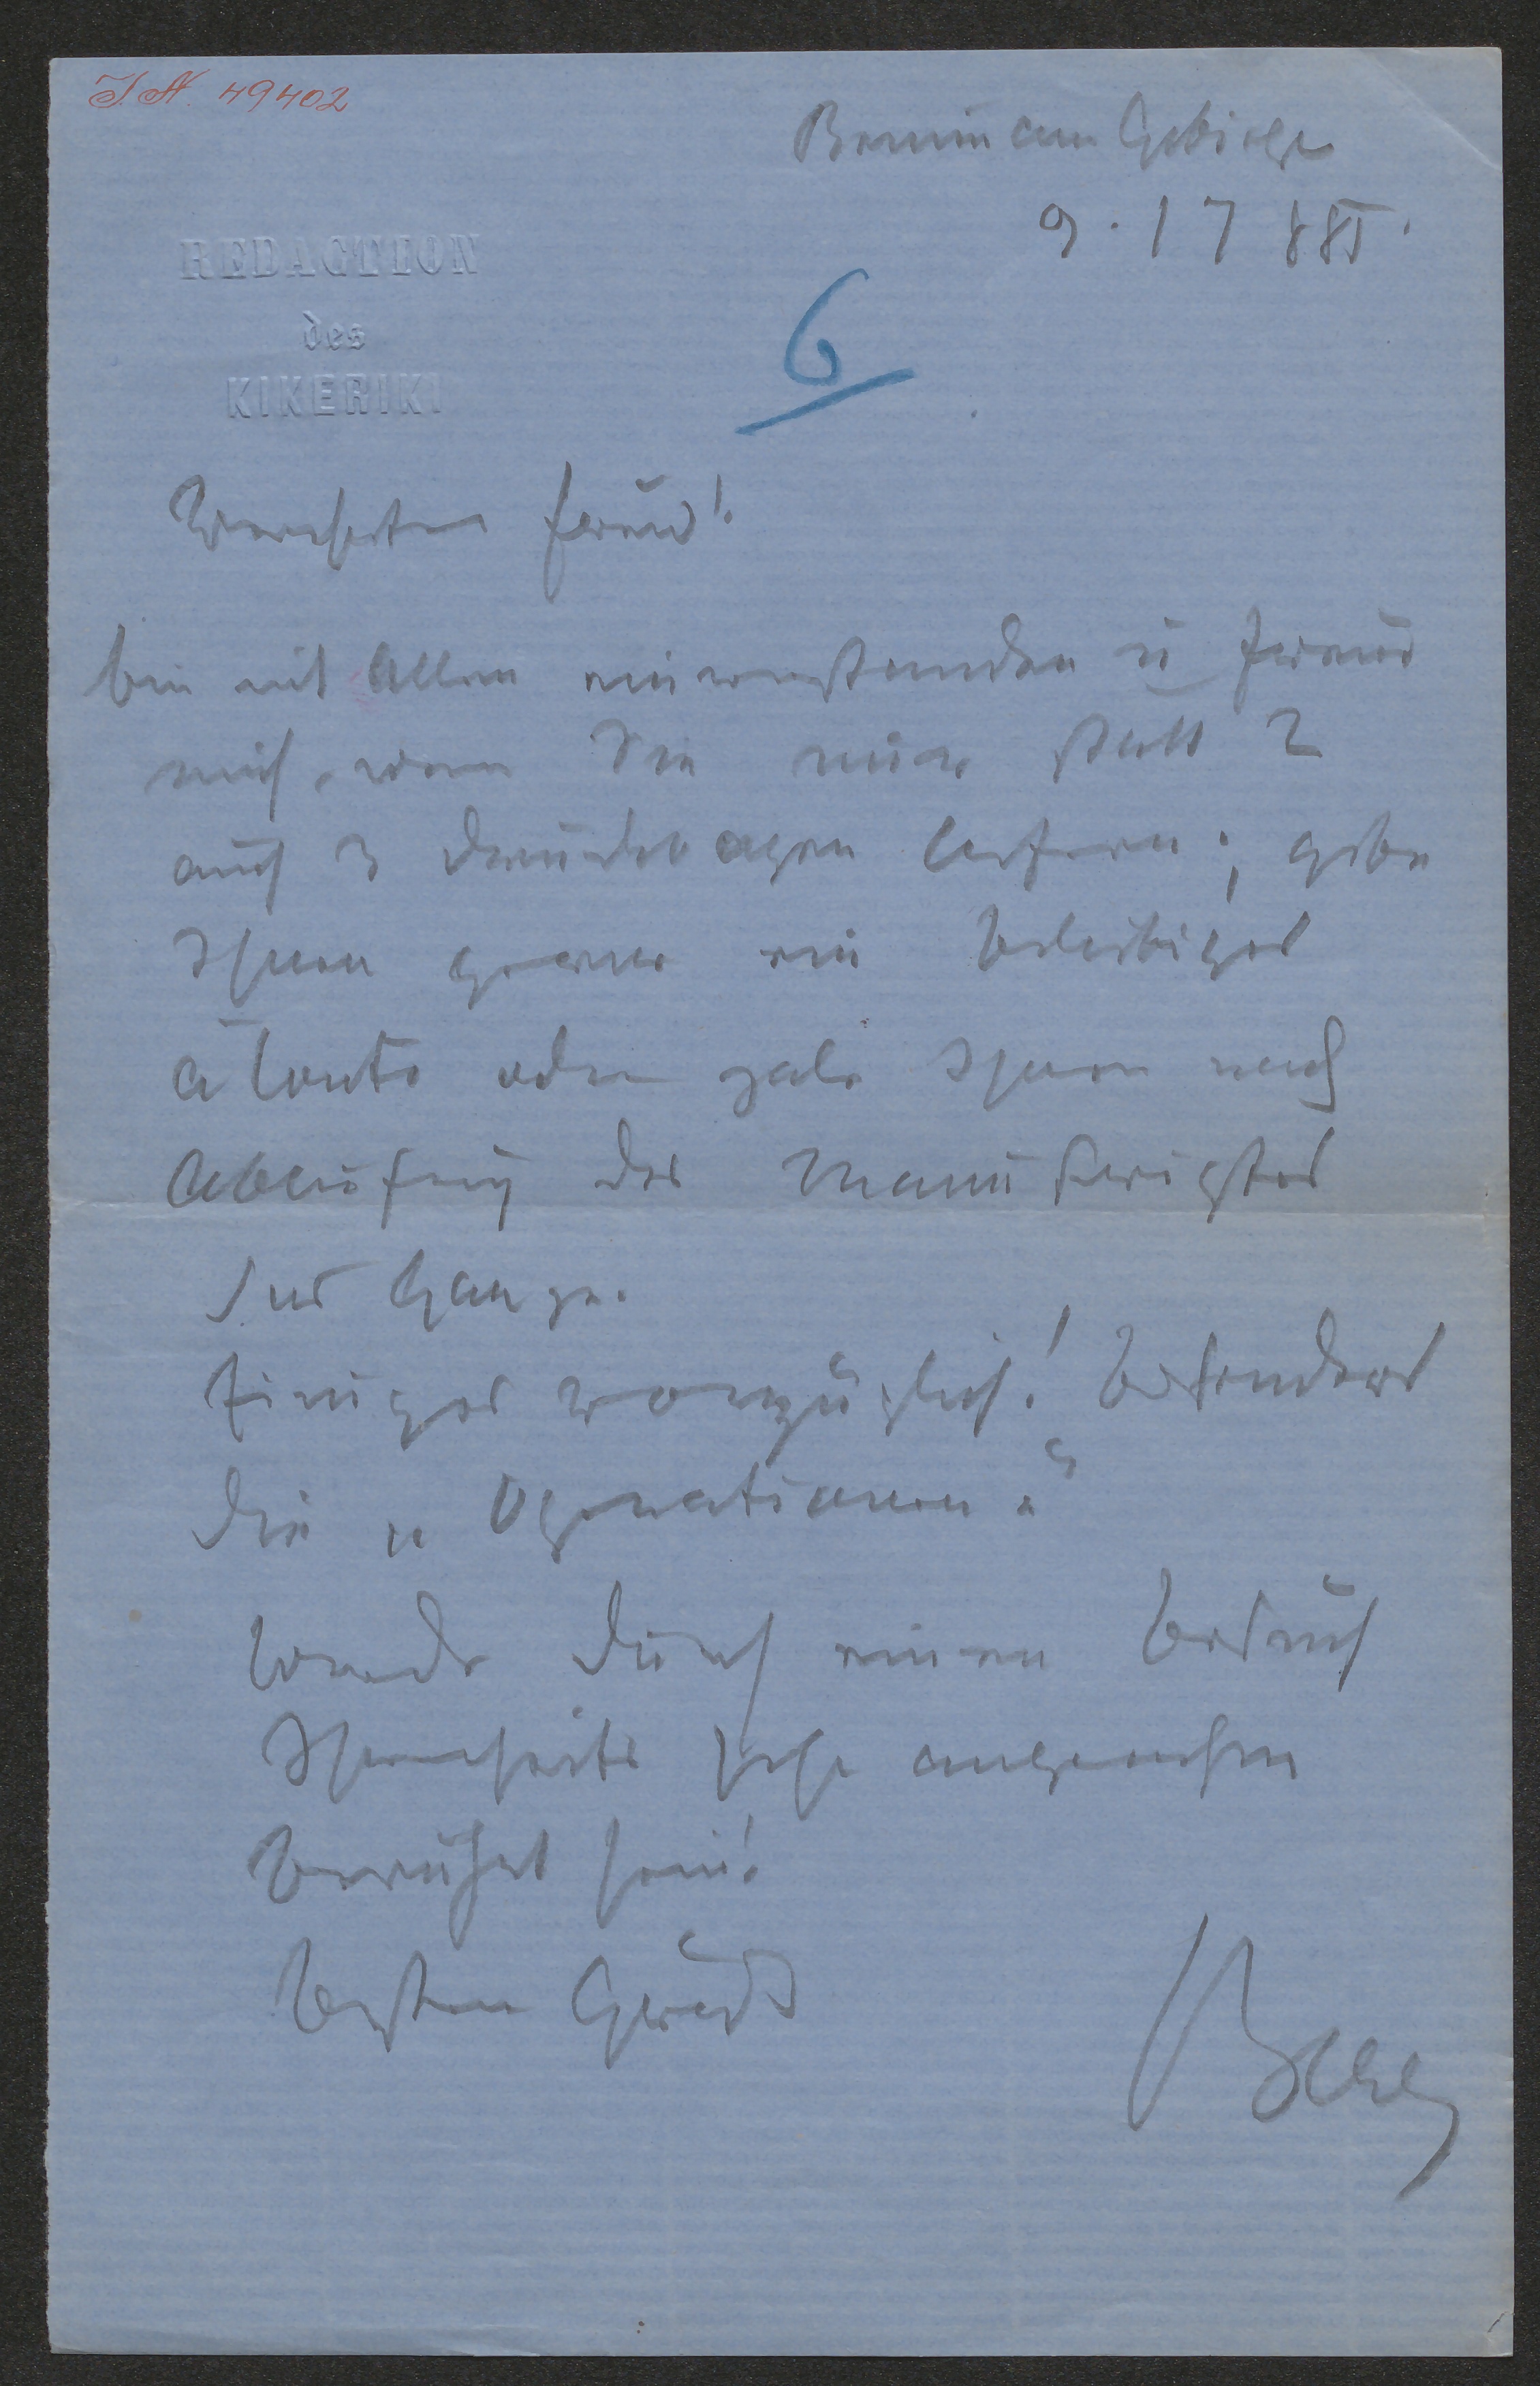 I.N. 49402
Brunn am Gebirge
9. 17 885.
REDACTION
des
KIKERIKI
6
Werthester Freund!
bin mit Allem einverstanden u freue
mich, wenn Sie mir statt 2
auch 3 Druckbogen liefern; gebe
Ihnen gerne ein beliebiges
à Conto oder zale Ihnen nach
Ablieferung des Manuskriptes
das Ganze.
Einiges vorzüglich! besonders
die „Operationen“
Würde durch einen Besuch
Ihrerseits sehr angenehm
berührt sein!
Besten Gruß
Berg